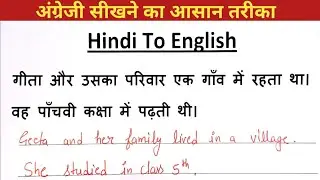 अंग्रेजी सीखने का आसान तरीका
Hindi To English
गीता और उसका परिवार एक गाँव में रहता था।
वह पाँचवी कक्षा में पढ़ती थी।
Geeta and her family lived in a village.
She studied in class 5th.